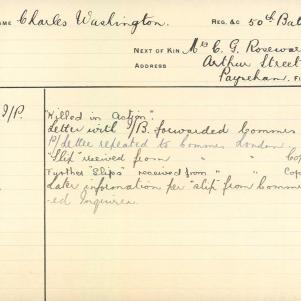 AME Charles Washington. REG. &C 50th Bat
NEXT OF KIN Mrs C. G. Rosewar
ADDRESS Arthur Street
Payneham.
I/P. "Killed in Action".
Letter with I/B. forwarded Commrs
P/Letter repeated to Commrs London.
"Slip" received from " " Cop
Further "Slips" received from " " Cop
Later information per "slip" from Comm
-ed Inquiries.